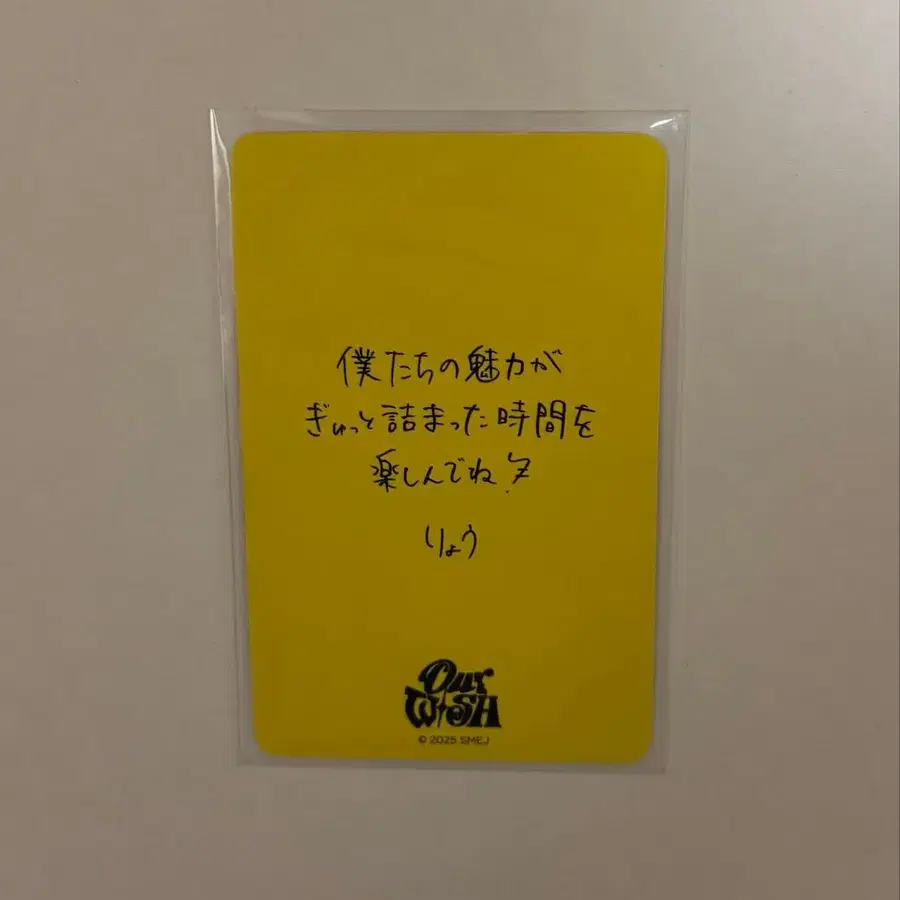 僕たちの魅力が
ぎゅっと詰まった時間を
楽しんでね!
りょう
Our
WiSH
© 2025 SMEJ